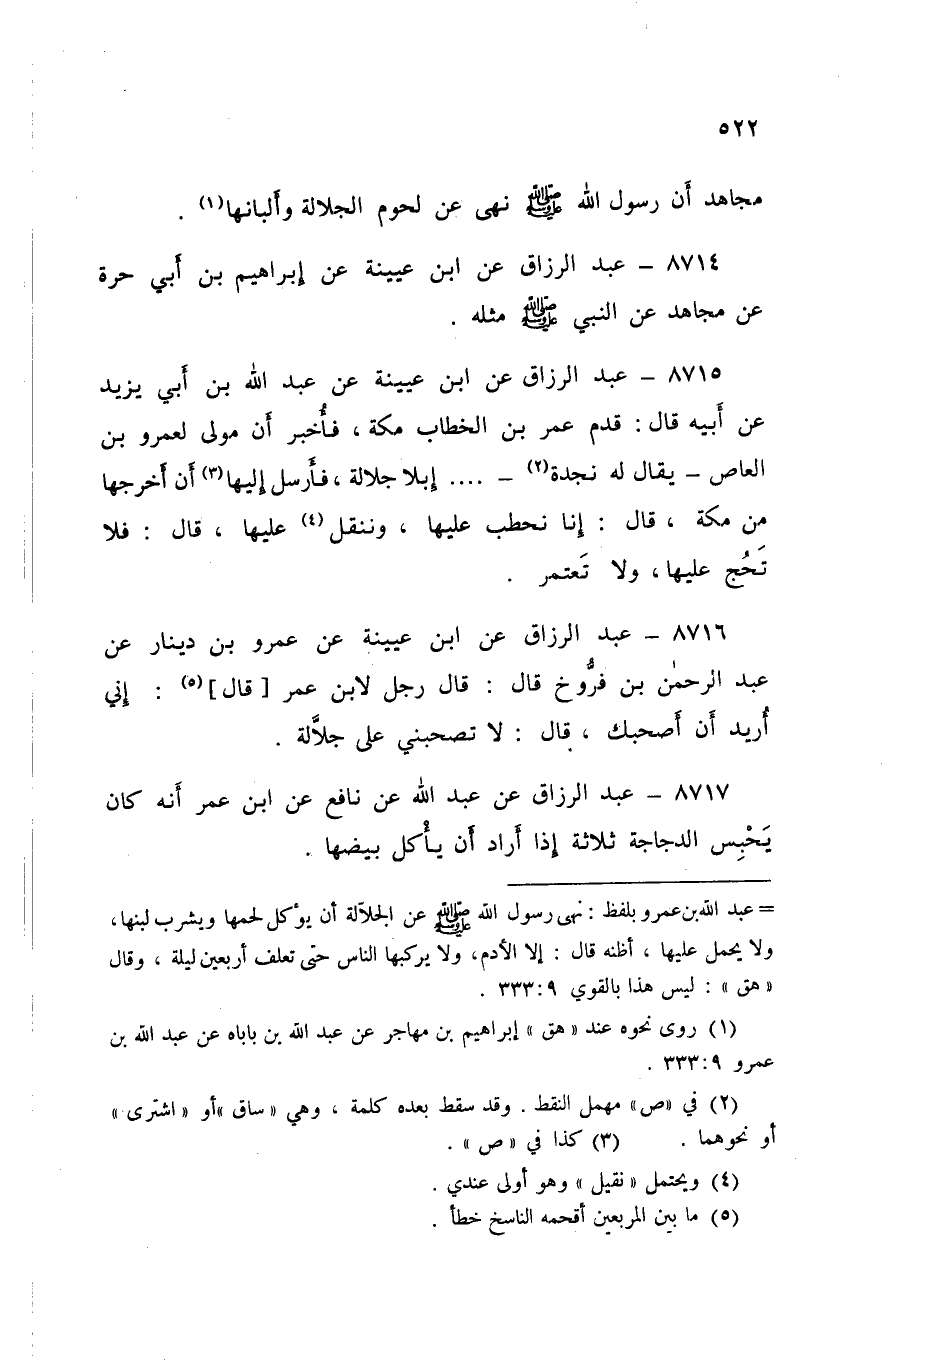 ٥٢٢
مجاهد أن رسول الله ﷺ نهى عن لحوم الجلالة وألبانها(١) .
٨٧١٤ – عبد الرزاق عن ابن عيينة عن إبراهيم بن أبي حرة
عن مجاهد عن النبي ﷺ مثله .
٨٧١٥ – عبد الرزاق عن ابن عيينة عن عبد الله بن أبي يزيد
عن أبيه قال : قدم عمر بن الخطاب مكة ، فأُخبر أن مولى لعمرو بن
العاص – يقال له نجدة(٢) – .... إبلا جلالة ، فأرسل إليها(٣) أن أخرجها
من مكة ، قال : إنا نحطب عليها ، وننقل(٤) عليها ، قال : فلا
تَحُج عليها ، ولا تَعتمر .
٨٧١٦ – عبد الرزاق عن ابن عيينة عن عمرو بن دينار عن
عبد الرحمٰن بن فرُّوخ قال : قال رجل لابن عمر [ قال ](٥) : إني
أُريد أن أصحبك ، قال : لا تصحبني على جلاَّلة .
٨٧١٧ – عبد الرزاق عن عبد الله عن نافع عن ابن عمر أنه كان
يَحْبِس الدجاجة ثلاثة إذا أراد أن يأْكل بيضها .
= عبد الله بن عمرو بلفظ : نهى رسول الله ﷺ عن الجلاّلة أن يؤكل لحمها ويشرب لبنها ،
ولا يحمل عليها ، أظنه قال : إلا الأدم، ولا يركبها الناس حتى تعلف أربعين ليلة ، وقال
« هق » : ليس هذا بالقوي ٩ : ٣٣٣ .
(١) روى نحوه عند « هق » إبراهيم بن مهاجر عن عبد الله بن باباه عن عبد الله بن
عمرو ٩ : ٣٣٣ .
(٢) في «ص» مهمل النقط . وقد سقط بعده كلمة ، وهي « ساق » أو « اشترى »
أو نحوهما . (٣) كذا في « ص » .
(٤) ويحتمل « نقيل » وهو أولى عندي .
(٥) ما بين المربعين أقحمه الناسخ خطأ .